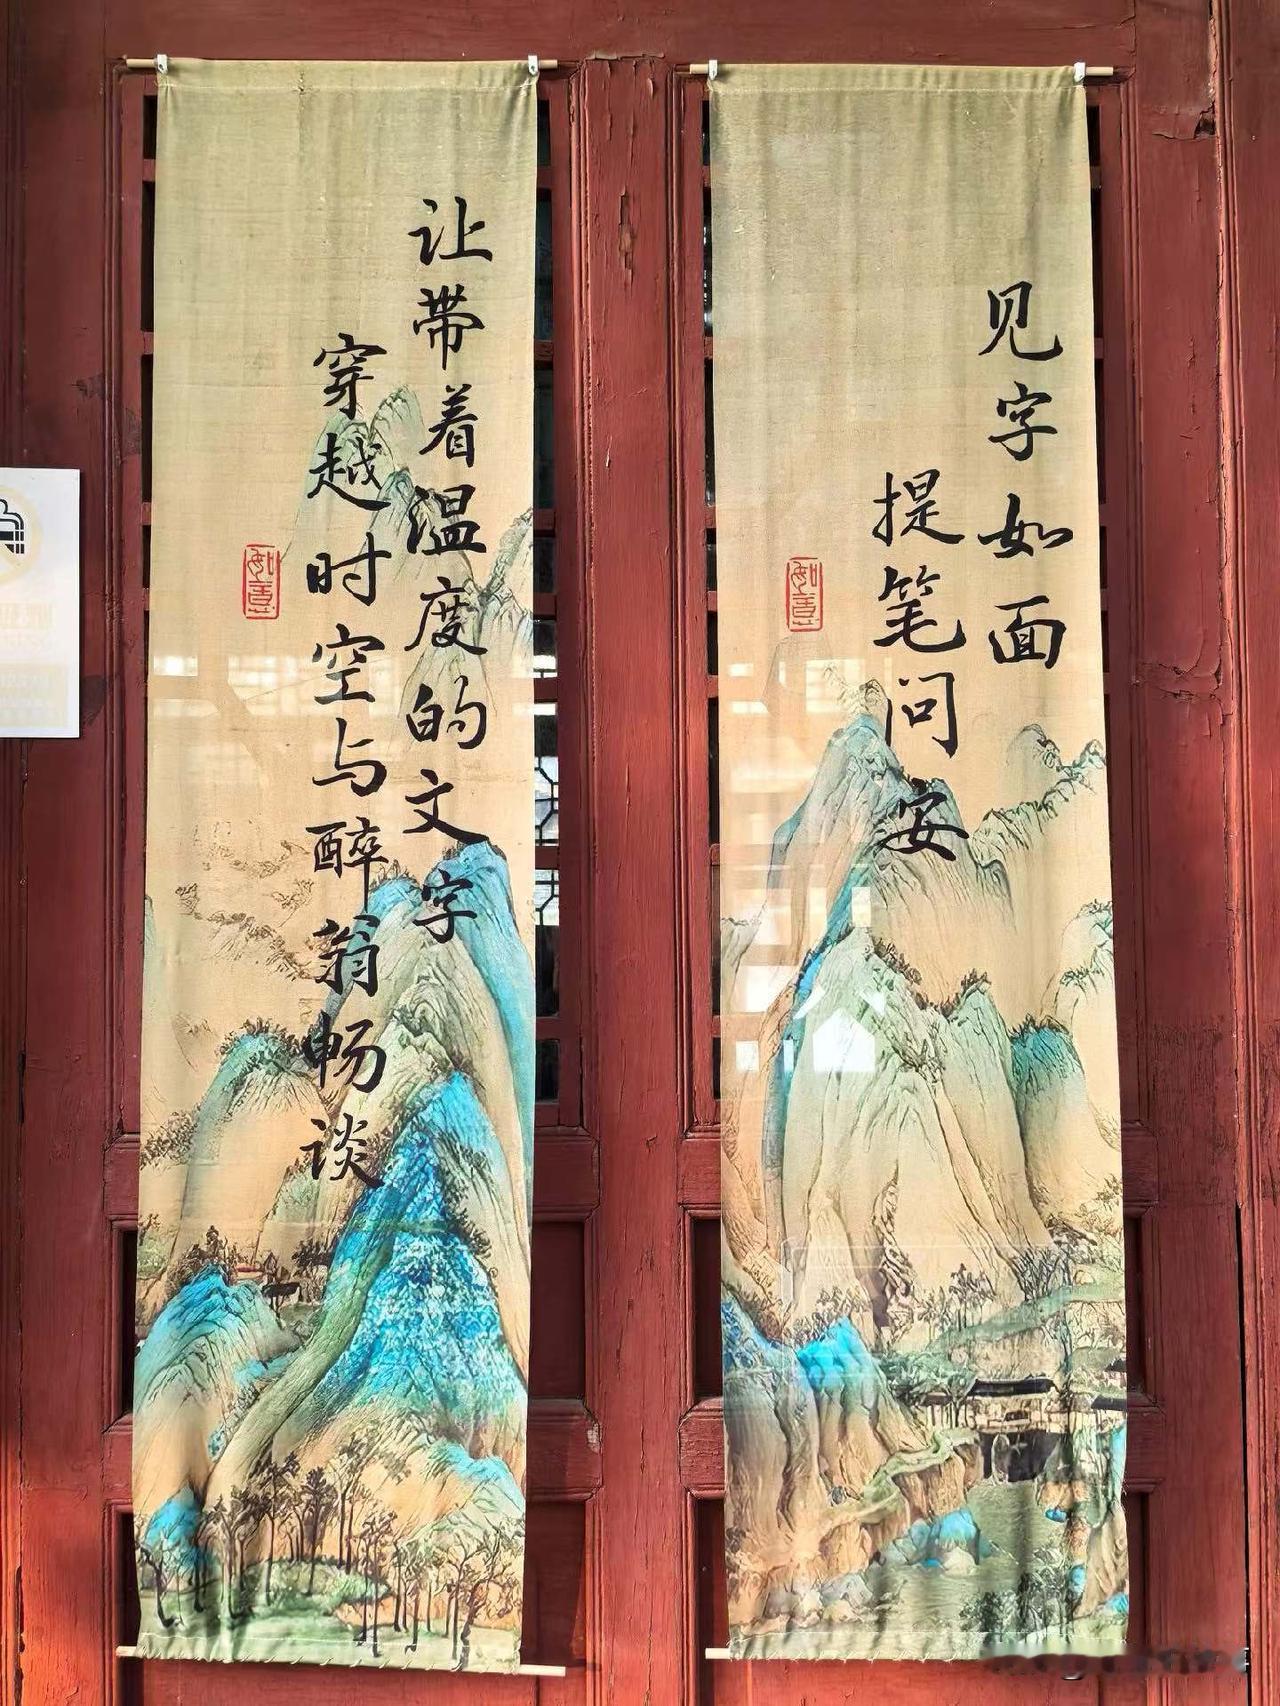 见字如面
提笔问安
如意
让带着温度的文字
穿越时空与醉翁畅谈
如意